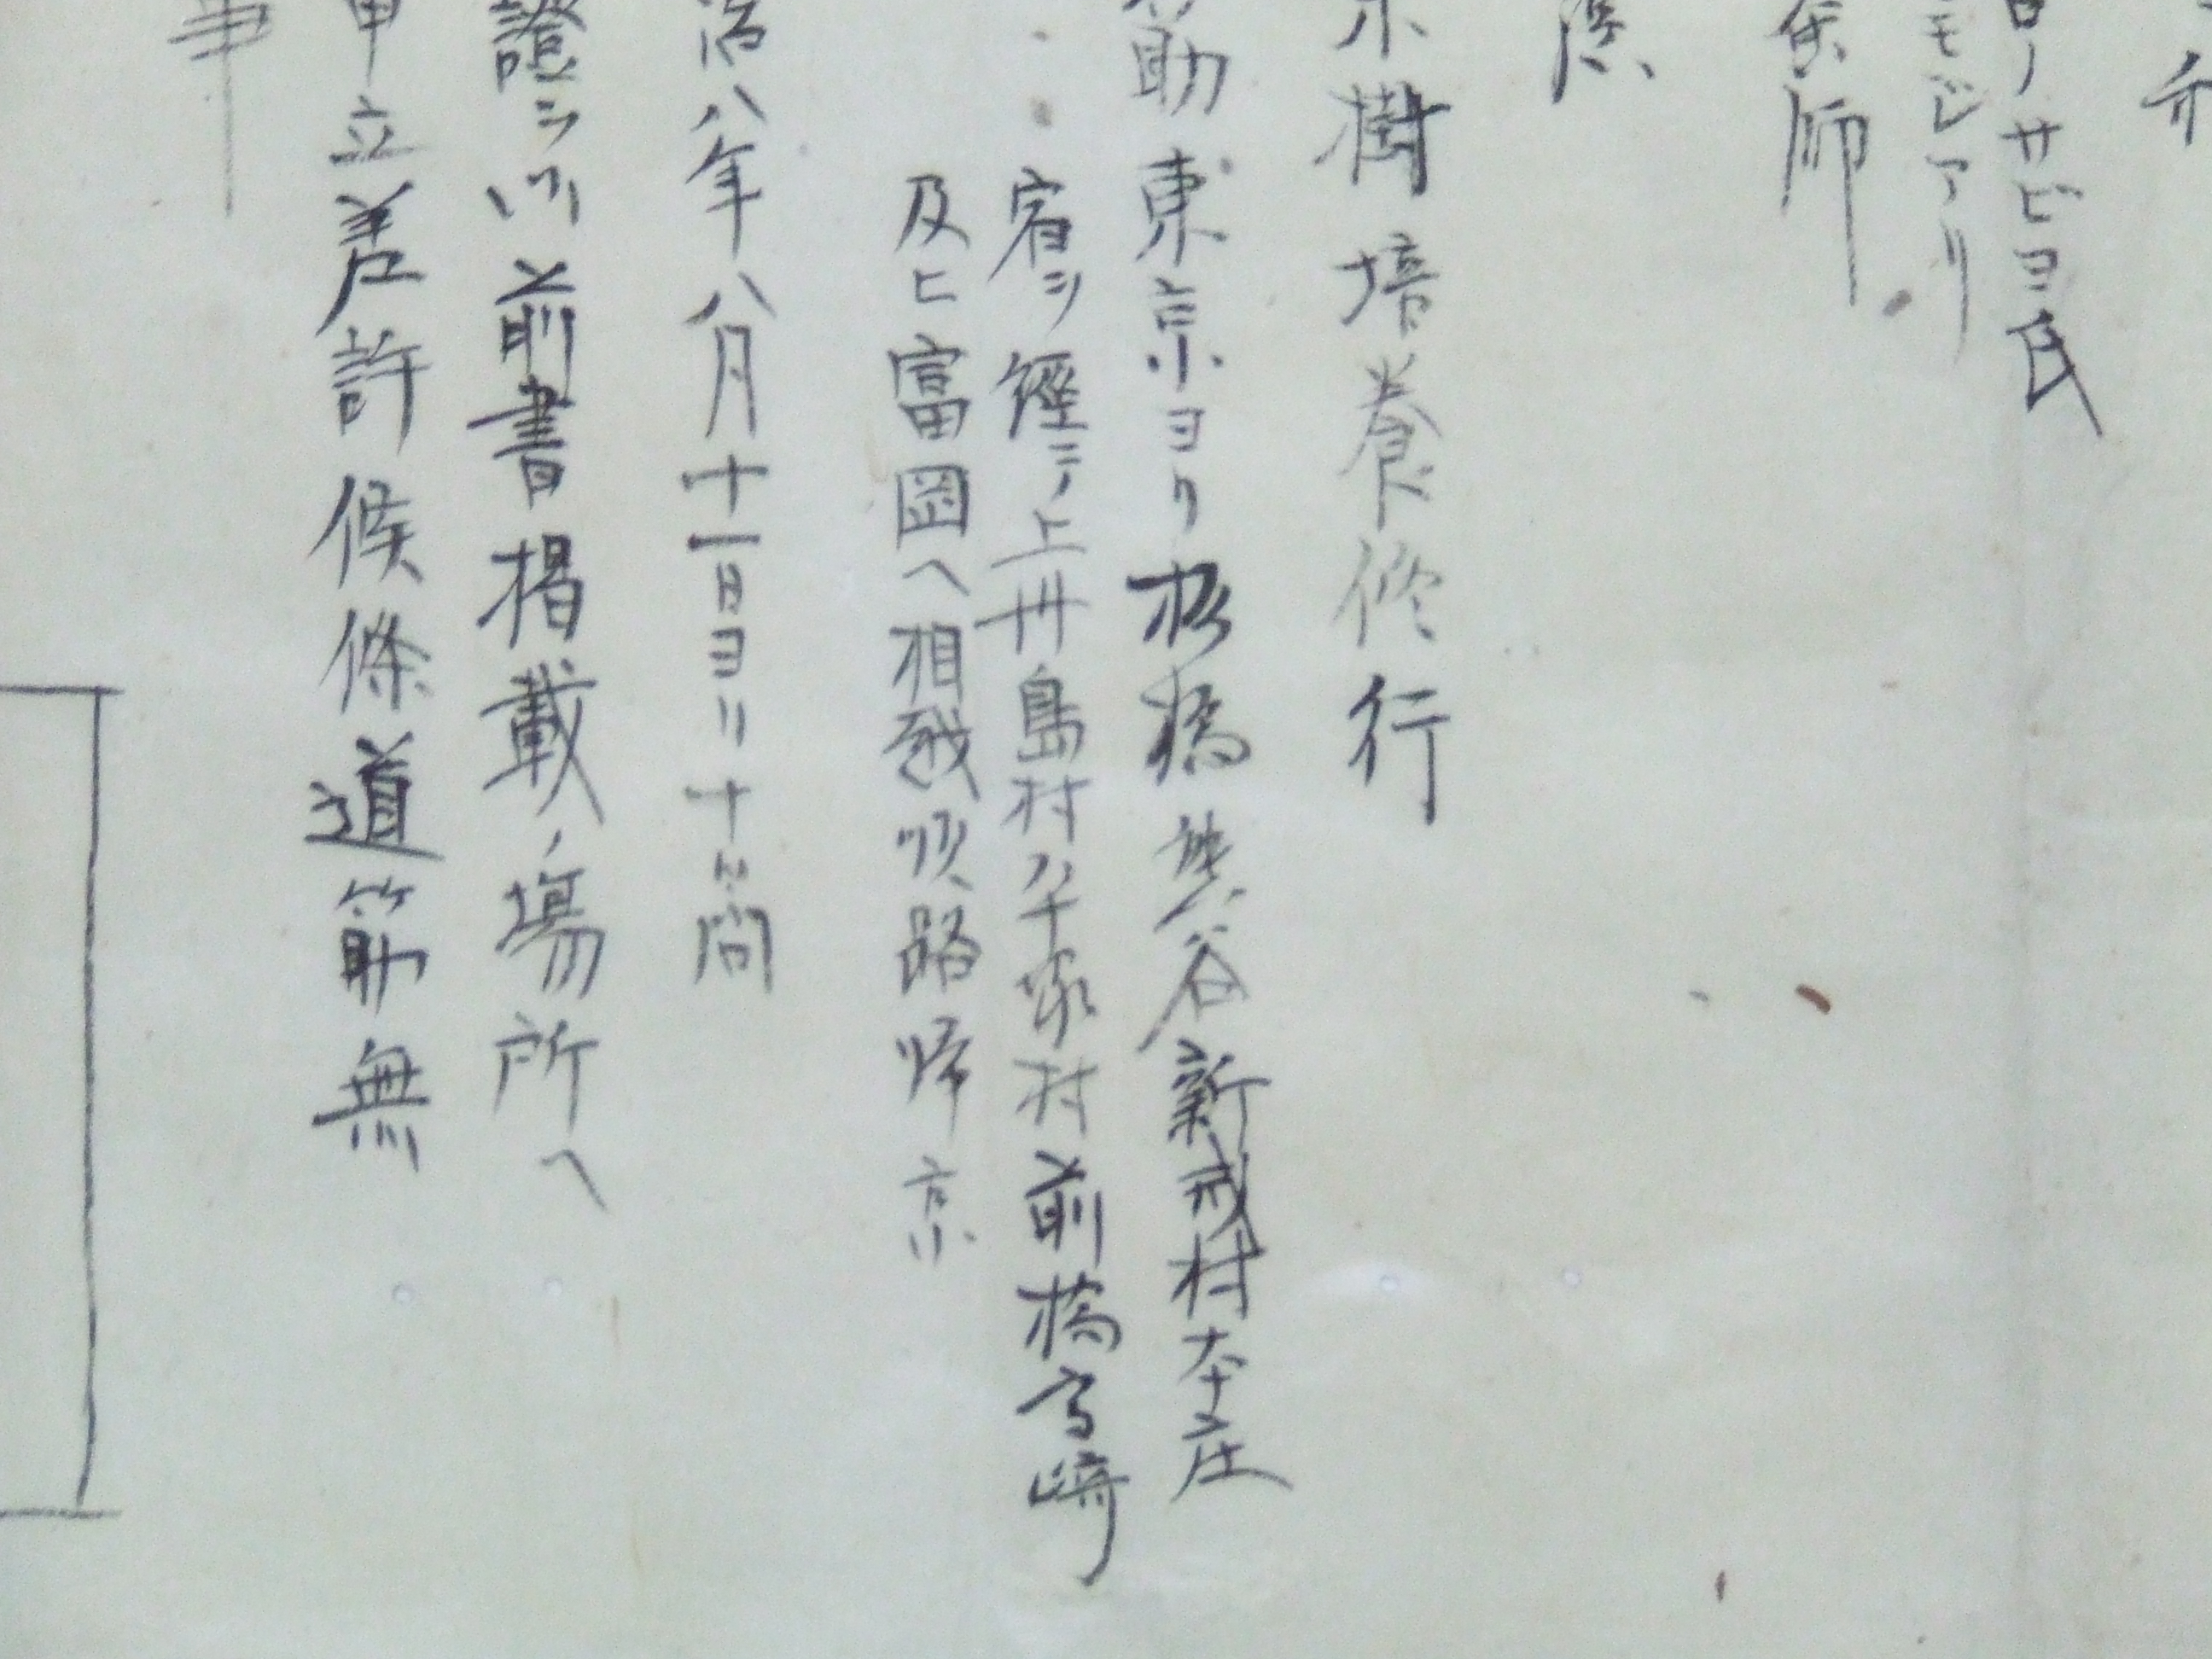 介
ローサビヨ氏
モジアリ
師
濱
木樹培養修行
筋東京ヨリ板橋熊谷新戒村本庄
宿シ經テ上卅島村平塚村前橋高崎
及ヒ富岡ヘ相越順路帰京
治八年八月十一日ヨリ十日間
證シ前書掲載ノ場所ヘ
申立差許候條道筋無
事